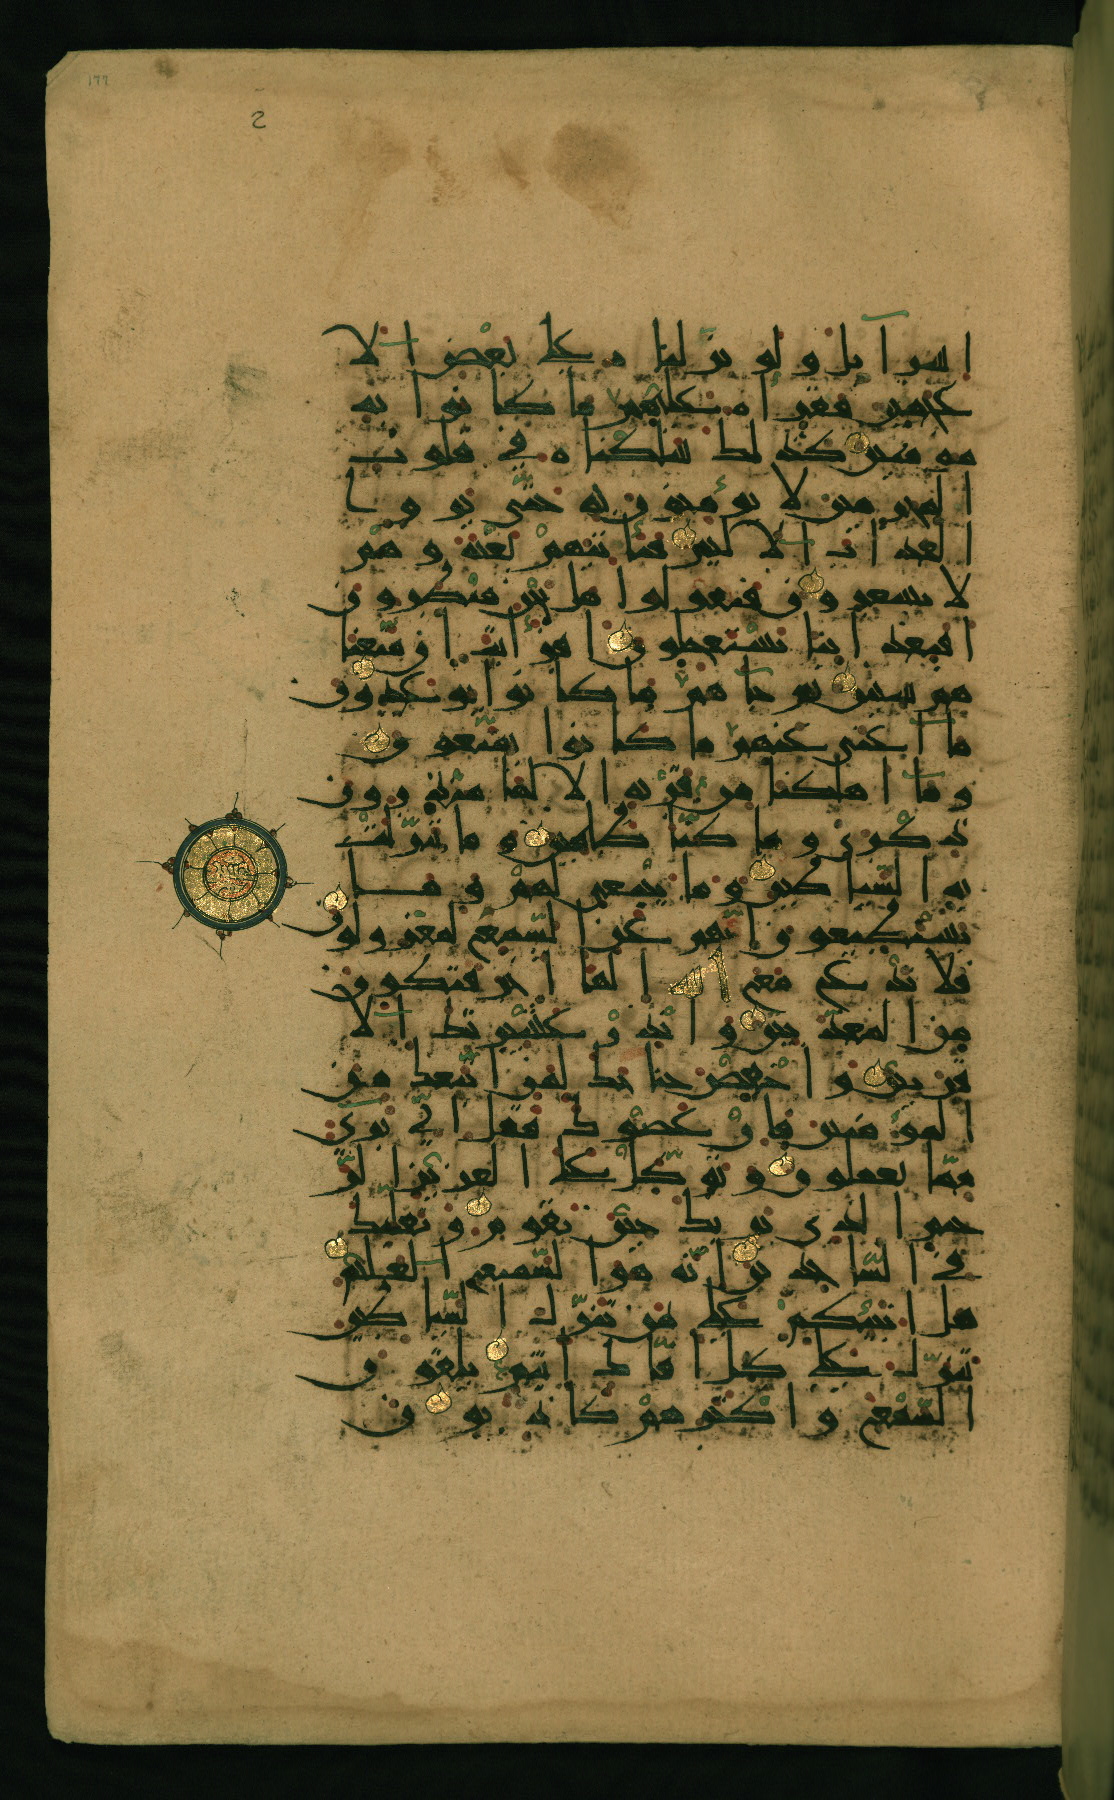 ١٧٧
اسرآيل ولو نزلناه على بعض الا
عجمين فقراه عليهم ما كانوا به
مومنين كذلك سلكناه في قلوب
المجرمين لا يومنون به حتى يروا
العذاب الاليم فياتيهم بغتة وهم
لا يشعرون فيقولوا هل نحن منظرون
افبعذابنا يستعجلون افرايت ان متعنا
هم سنين ثم جاهم ما كانوا يوعدون
ما اغنى عنهم ما كانوا يمتعون
وما اهلكنا من قرية الا لها منذرون
ذكرى وما كنا ظلمين وما تنزلت
به الشياطين وما ينبغي لهم وما
يستطيعون انهم عن السمع لمعزولون
فلا تدع مع الله الها اخر فتكون
من المعذبين وانذر عشيرتك الا
قربين واخفض جناحك لمن اتبعك من
المومنين فان عصوك فقل اني بري
مما تعملون وتوكل على العزيز الر
حيم الذي يريك حين تقوم وتقلبك
في الساجدين انه هو السميع العليم
هل انبئكم على من تنزل الشياطين
تنزل على كل افاك اثيم يلقون
السمع واكثرهم كاذبون